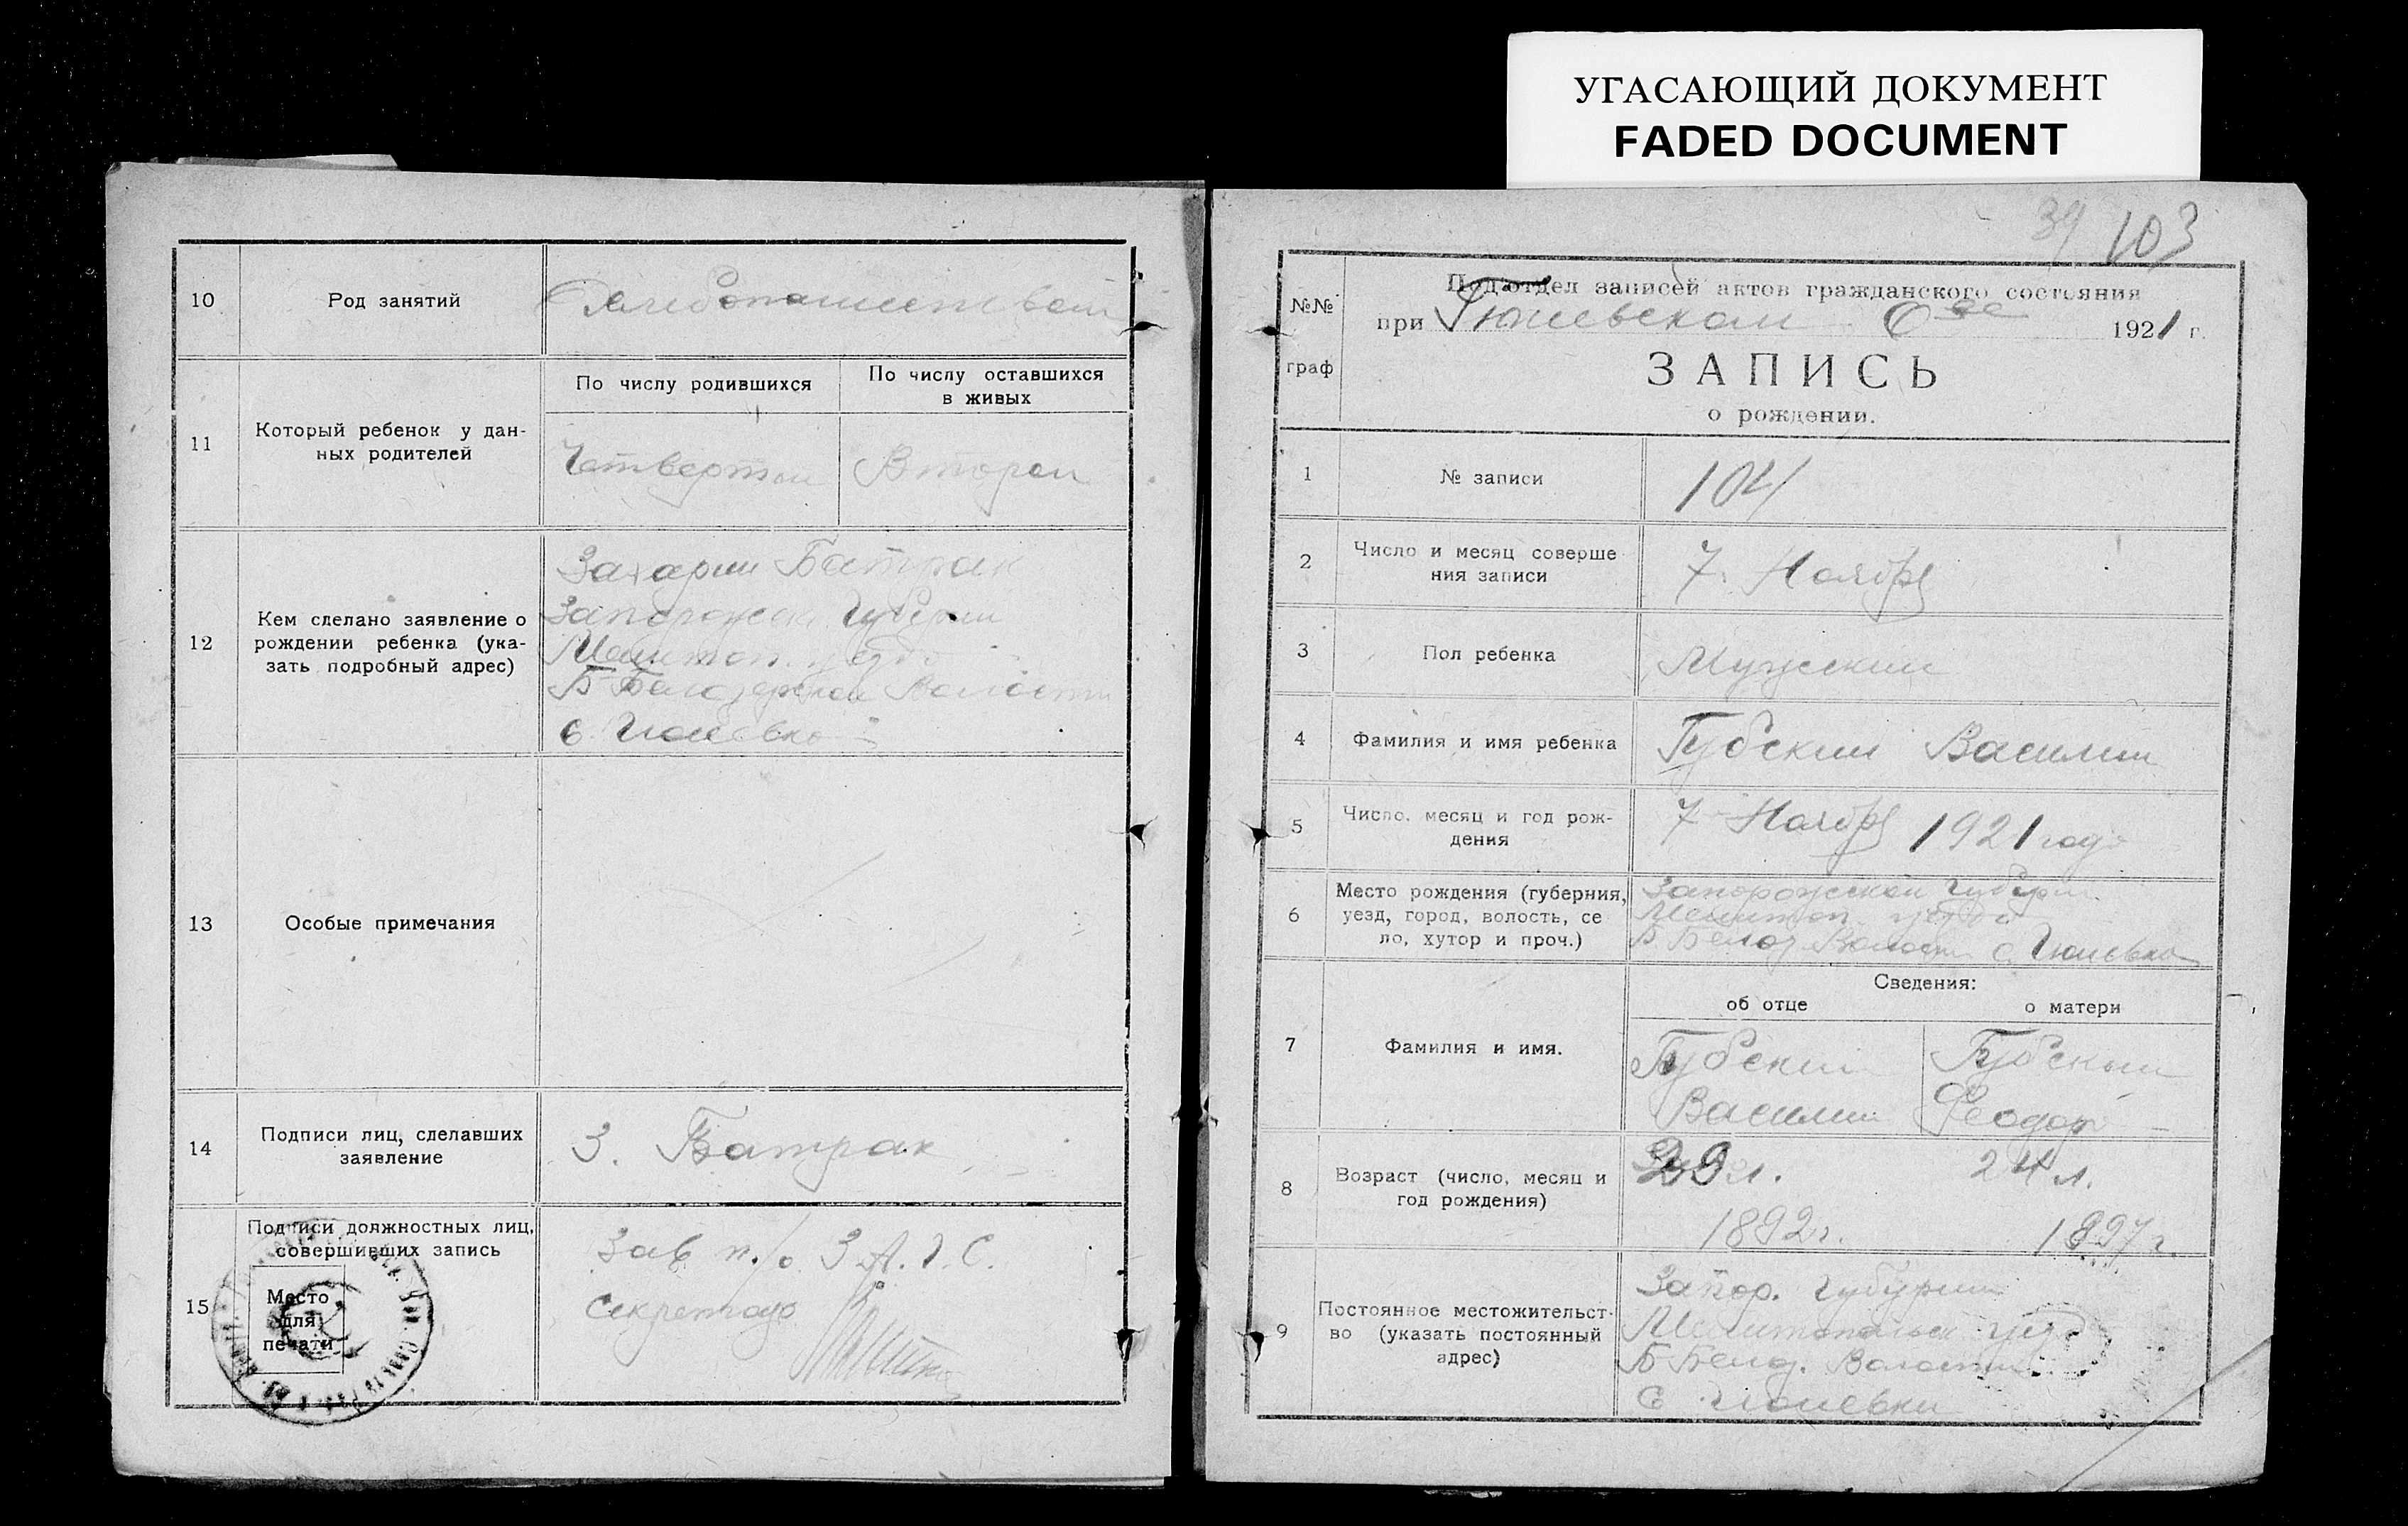 УГАСАЮЩИЙ ДОКУМЕНТ
FADED DOCUMENT
10
Род занятий
11
Который ребенок у дан-
ных родителей
По числу родившихся
Четвертый
По числу оставшихся
в живых
Второй
12
Кем сделано заявление о
рождении ребенка (ука-
зать подробный адрес)
Захарий Батрак
Запорожск Губернии
Мелитоп. уезда
Б Белозерской Волости
с.
13
Особые примечания
14
Подписи лиц, сделавших
заявление
З. Батрак
15
Подписи должностных лиц,
совершивших запись
Место
для
печати
Зав п/о З.А.Г.С.
Секретарь
39
103
№№
граф
Подотдел записей актов гражданского состояния
при 1921 г.
ЗАПИСЬ
о рождении.
1
№ записи
104
2
Число и месяц соверше
ния записи
7. Ноября
3
Пол ребенка
Мужский
4
Фамилия и имя ребенка
Губский Василий
5
Число, месяц и год рож-
дения
7 Ноября 1921 года
6
Место рождения (губерния,
уезд, город, волость, се
ло, хутор и проч.)
Запорожской губерн
Мелитоп. уезда
Б Белоз Волости с.
7
Фамилия и имя.
Сведения:
об отце
о матери
Губский
Василий
Губский
Феодор
8
Возраст (число, месяц и
год рождения)
29 л.
1892 г.
24 л.
1897 г.
9
Постоянное местожительст-
во (указать постоянный
адрес)
Запор. губернии
Мелитопольск уезд
Б Белоз. Волости
с